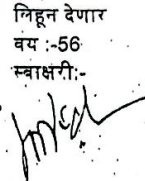 लिहून देणार
वय :-56
स्वाक्षरी:-